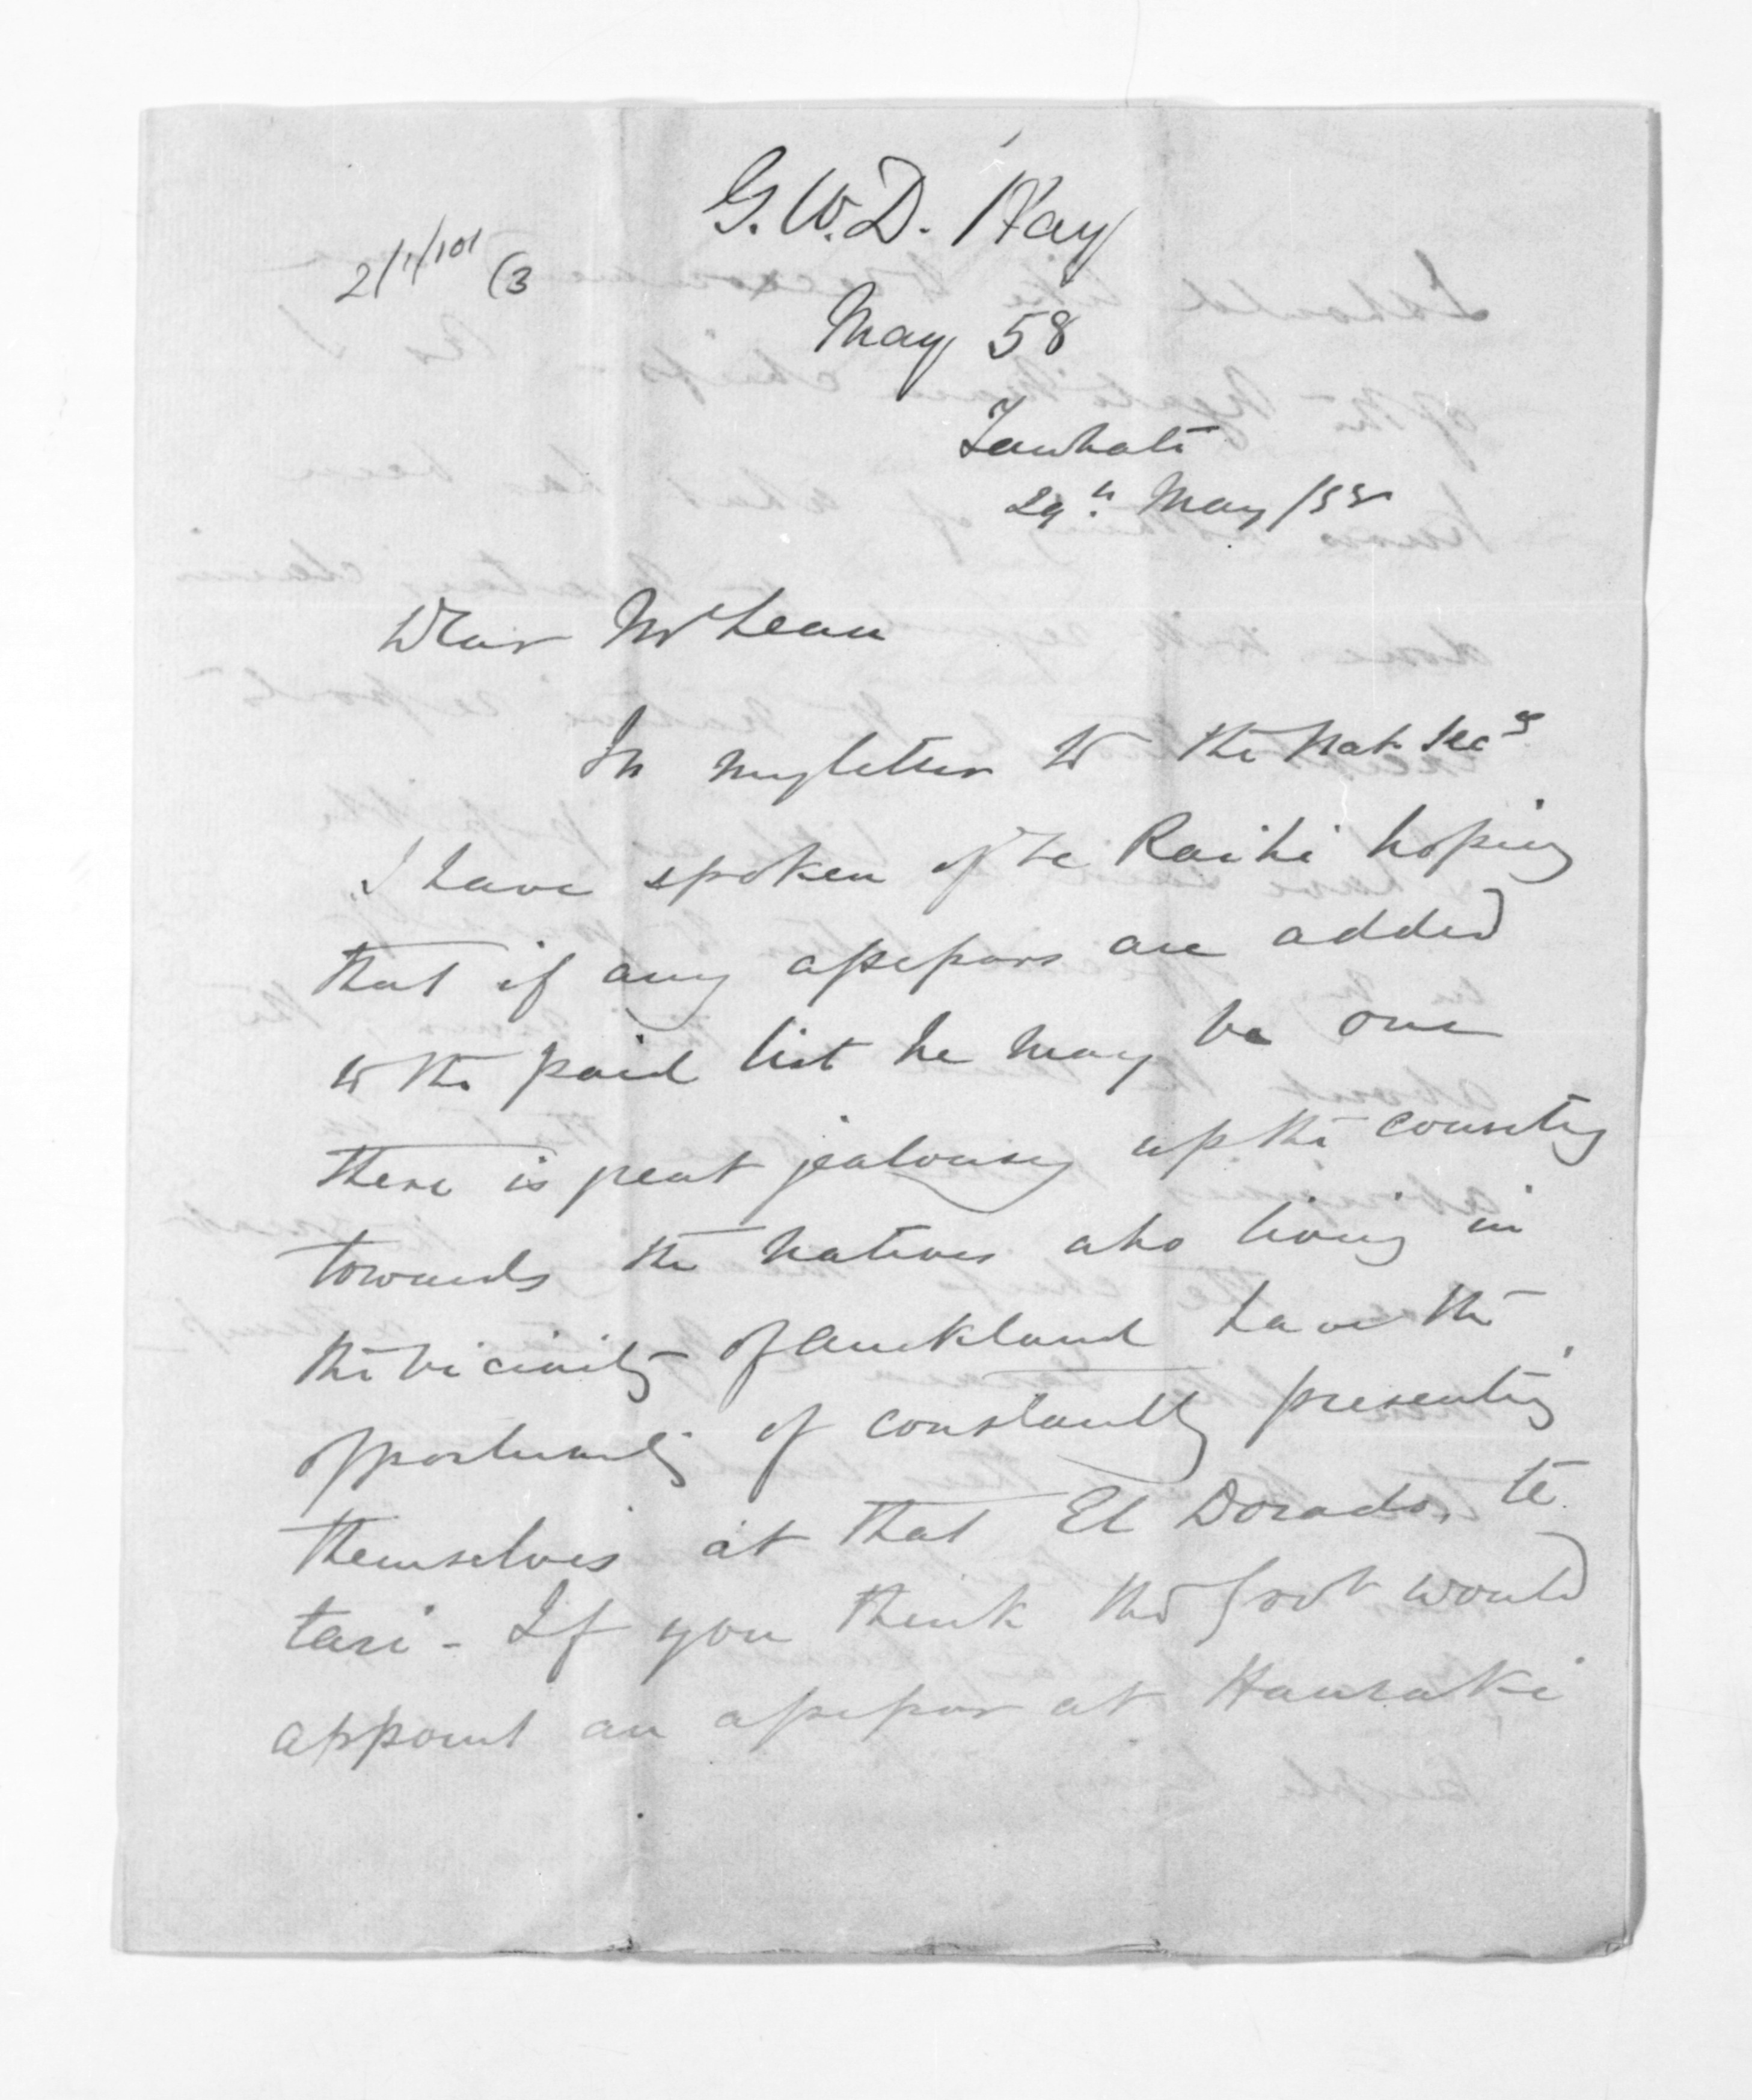 G.W.D. Hay
2/1/101 (3
May 58
Tauhati
29th May /58
Dear McLean
In my letter to the Nat Secy
I have spoken of Te Raihi hoping
that if any assessors are added
to the paid list he may be one
there is great jealousy up the country
towards the natives who living in
the vicinity of Auckland have the
opportunity of constantly presenting
themselves at that El Dorado, te
tari - If you think the Govt would
appoint an assessor at Hauraki